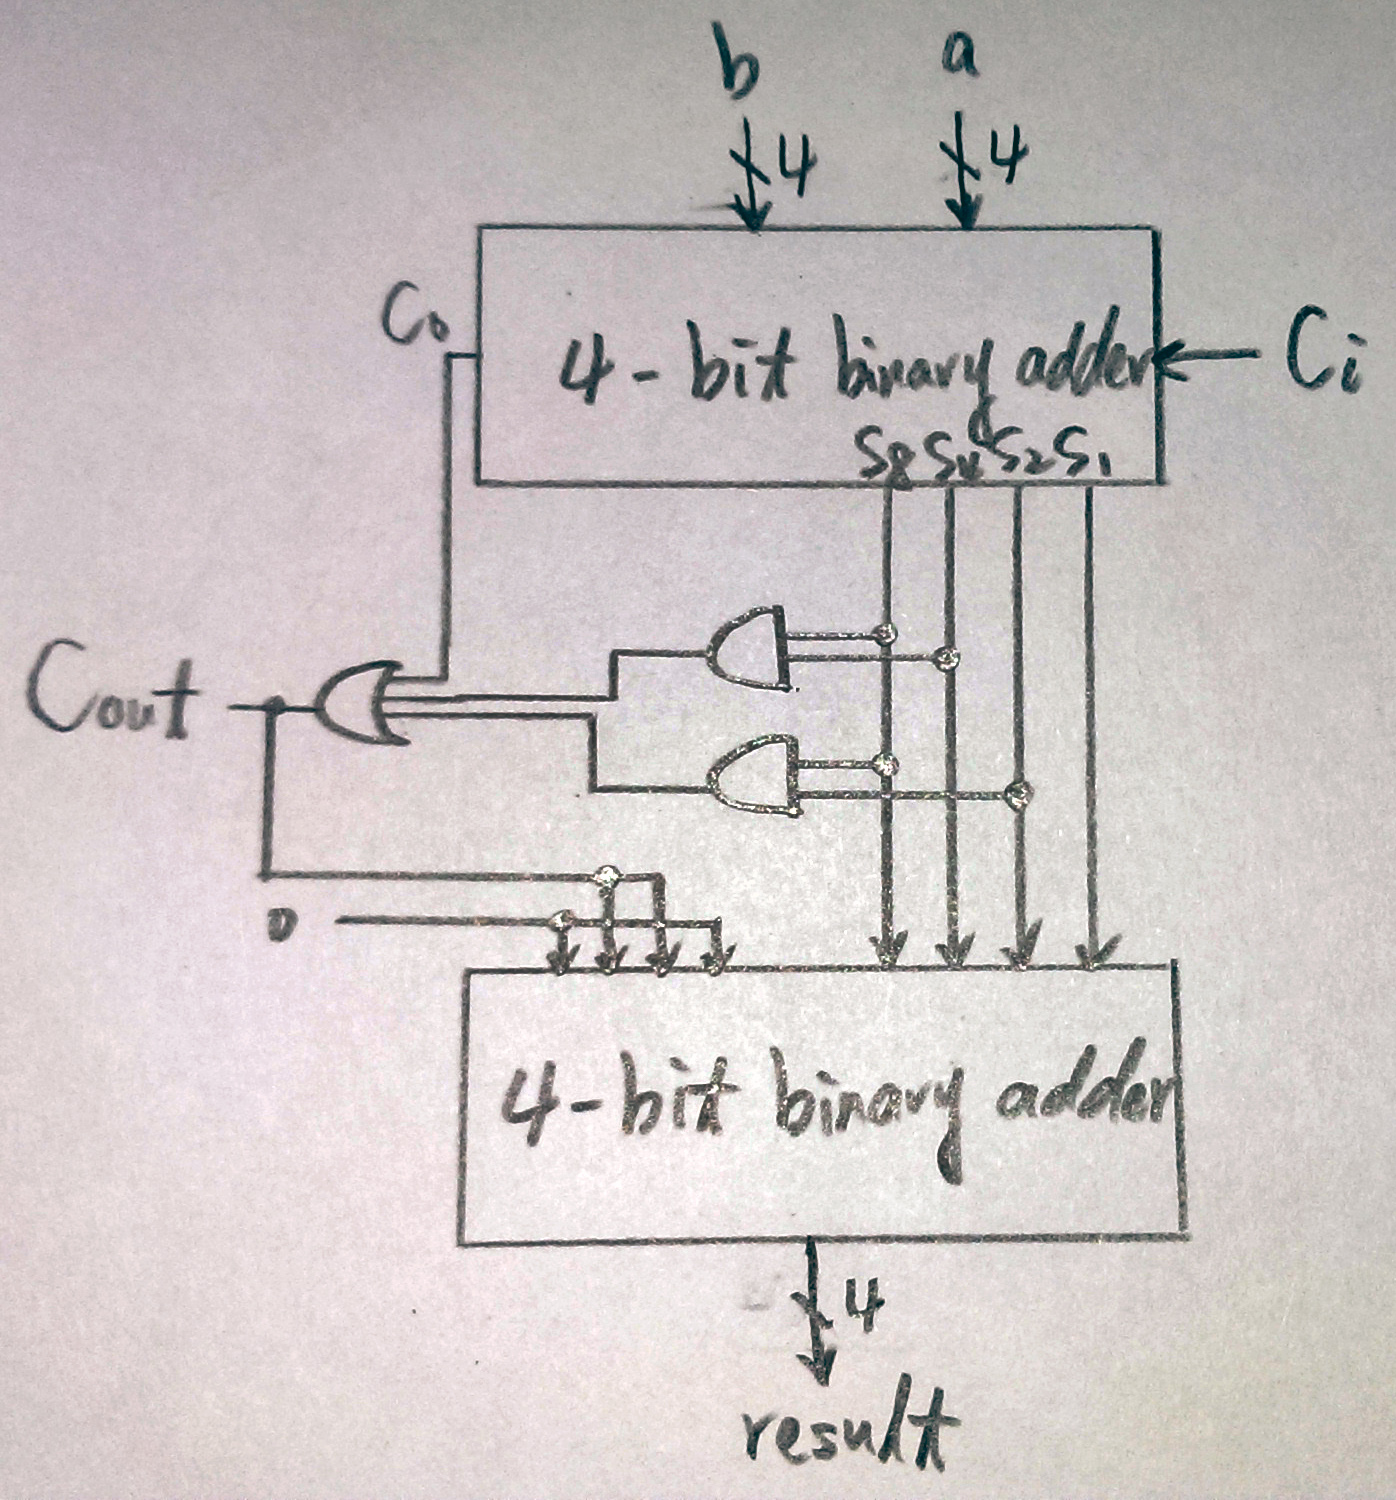 b a
4 4
Co
4-bit binary adder
Ci
S8 S4 S2 S1
Cout
0
4-bit binary adder
4
result